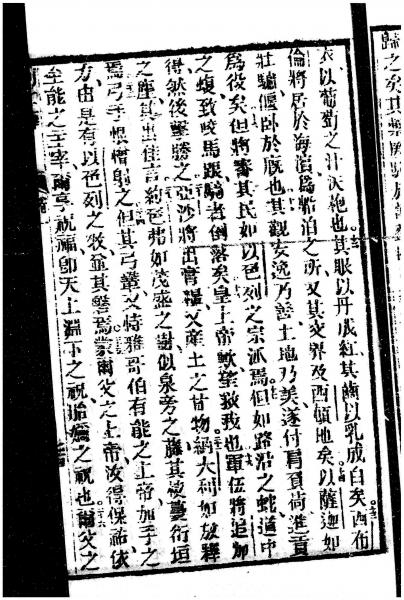 衣以葡萄之汁決袍也其眼以丹成紅其齒以乳成白矣西布
倫將居於海濱爲船泊之所又其交界及西頓地矣以薩迦如
壯驢偃臥於廐也其觀安逸乃善土地乃美遂付肩負荷進貢
爲役矣但將審其民如以色列之宗派焉但如路沿之蛇道中
之蝮致咬馬跟騎者倒落矣皇上帝歟望救我也軍伍將追加
得然後擊勝之亞沙將出膏糧又產土之甘物納大利如放釋
之鹿其出佳言約色弗如茂盛之樹似泉旁之藤其枝蔓衍垣
焉弓手恨憎射之但其弓鞏又特雅哥伯有能之上帝加手之
力由是有以色列之牧並其磐焉蒙爾父之上帝汝得保祐依
至能之主宰爾享祝福卽天上溫下之祝胎腸之祝也爾父之